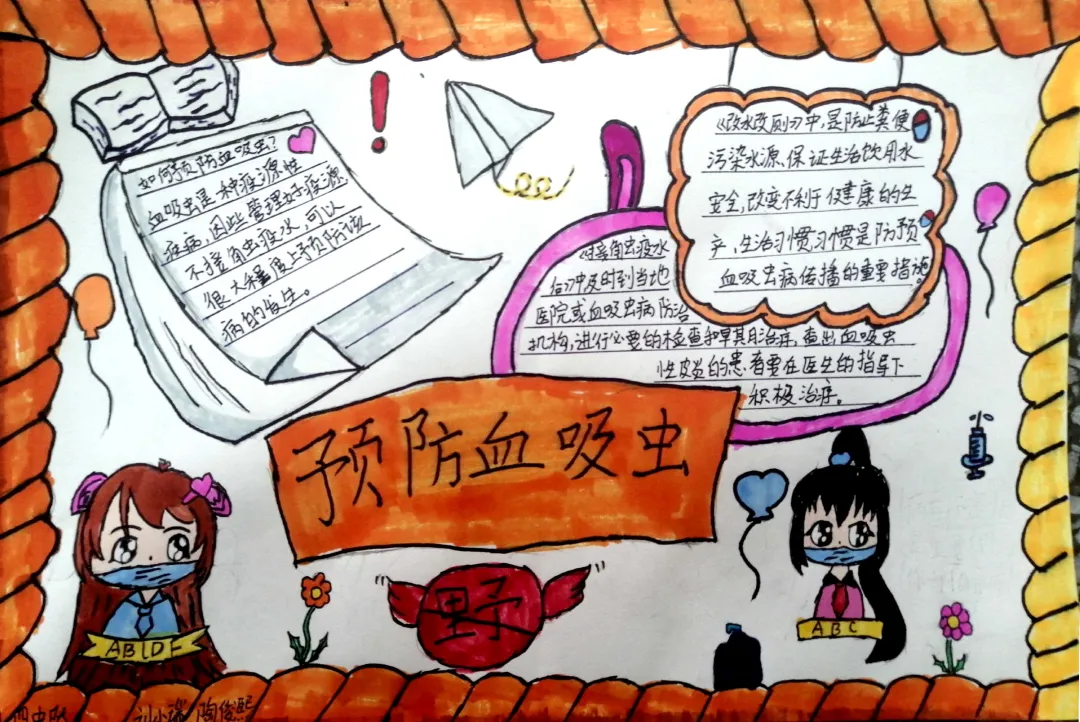 如何预防血吸虫?
血吸虫是一种疫源性
疾病,因些管理好疫源,
不接触虫疫水,可以
很大程度上预防该
病的发生。
《改水改厕》中,是防止粪便
污染水源,保证生活饮用水
安全,改变不利于健康的生
产,生活习惯习惯是防预
血吸虫病传播的重要措施。
《接触虫疫水
后》冲及时到当地
医院或血吸虫病防治
机构,进行必要的检查和早期治疗,查出血吸虫
性皮炎的患者要在医生的指导下
积极治疗。
预防血吸虫
野
ABCDF
ABC
四中队
刘小瑞 陶俊熙